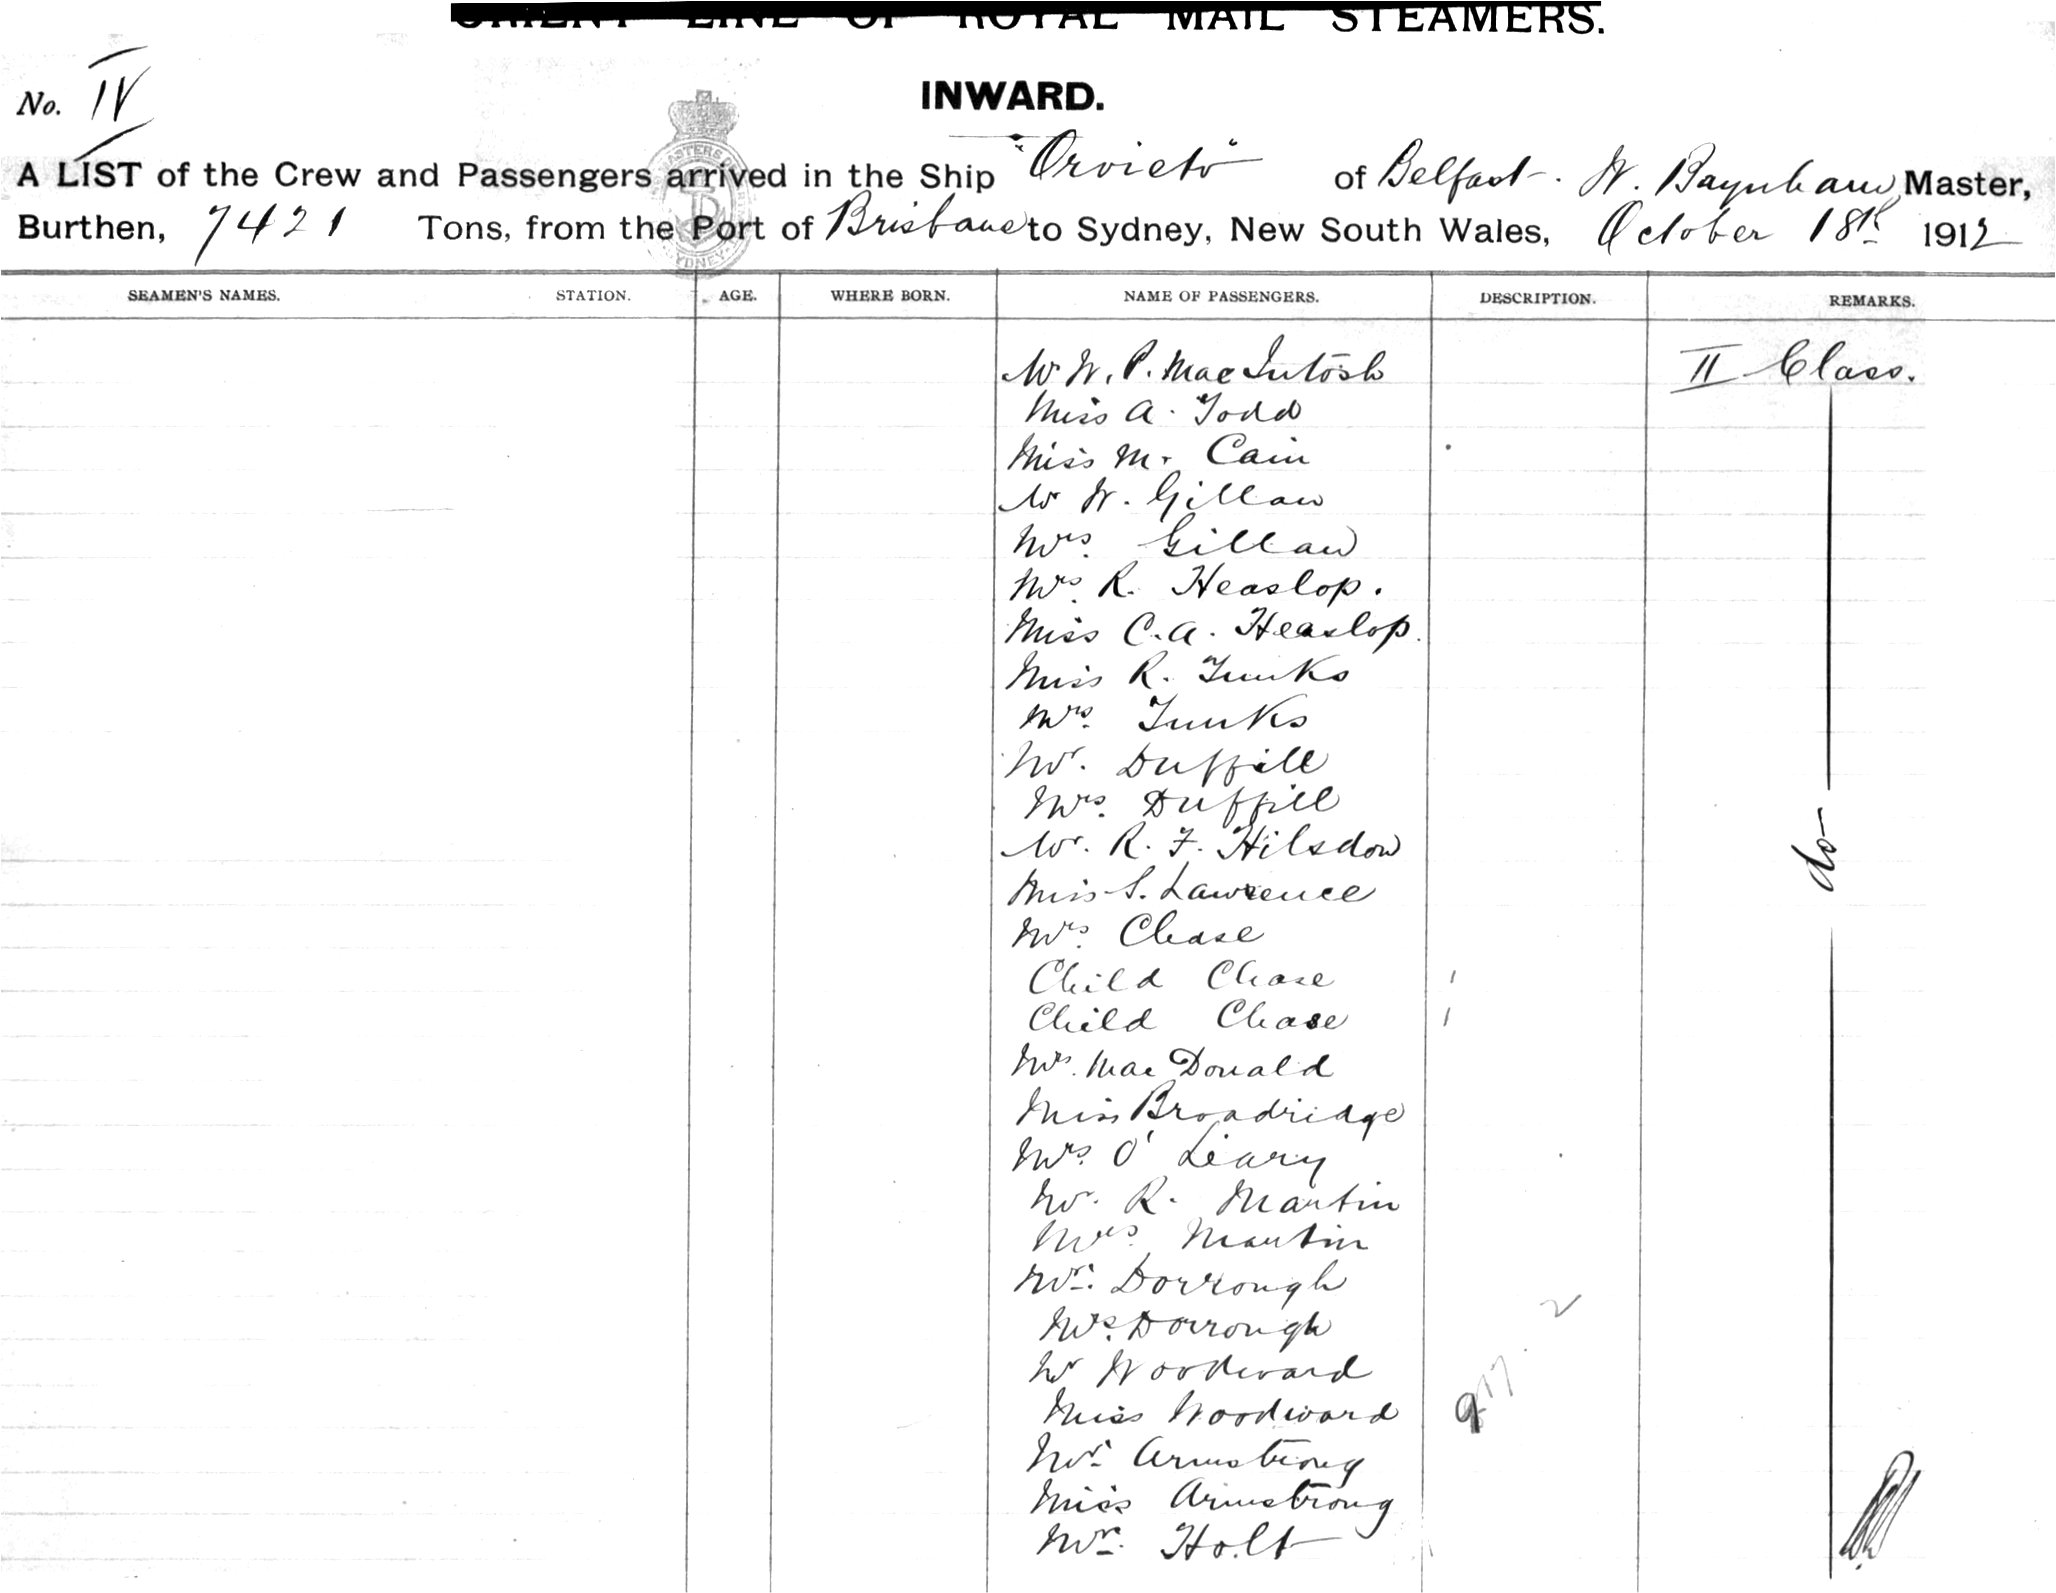 ORIENT LINE OF ROYAL MAIL STEAMERS.
No. IV
INWARD.
A LIST of the Crew and Passengers arrived in the Ship "Orvieto" of Belfast. W. Baynham Master,
Burthen, 7421 Tons, from the Port of Brisbane to Sydney, New South Wales, October 18th 1912
SEAMEN'S NAMES. STATION. AGE. WHERE BORN. NAME OF PASSENGERS. DESCRIPTION. REMARKS.
Mr W. P. MacIntosh II Class.
Miss A. Todd
Miss M. Cain
Mr W. Gillan
Mrs. Gillan
Mrs. R. Heaslop.
Miss C. A. Heaslop.
Miss R. Junks
Mrs. Junks
Mr. Duffill
Mrs. Duffill
Mr. R. F. Hilsdon do
Miss S. Lawrence
Mrs. Chase
Child Chase
Child Chase
Mrs. MacDonald
Miss Broadridge
Mrs. O'Leary
Mr. R. Martin
Mrs. Martin
Mr. Dorrough
Mrs. Dorrough
Mr Woodward
Miss Woodward
Mr. Armstrong
Miss Armstrong
Mr. Holt